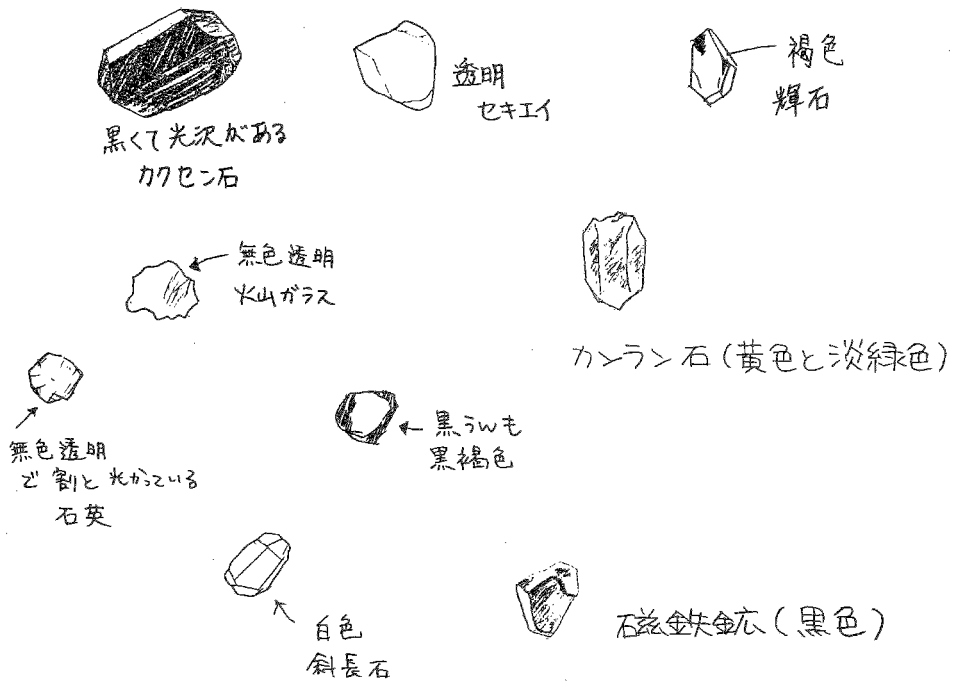 黒くて光沢がある
カクセン石
透明
セキエイ
褐色
輝石
無色透明
火山ガラス
カンラン石(黄色と淡緑色)
無色透明
で割と光かっている
石英
黒うんも
黒褐色
白色
斜長石
磁鉄鉱(黒色)